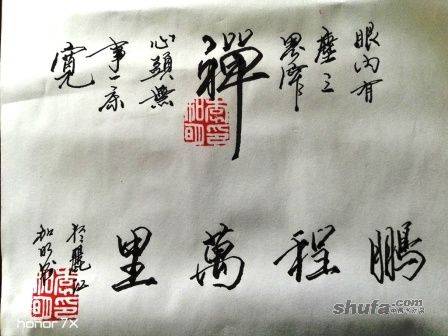 眼内有
塵三
界窄
禪
心頭無
事一床
寬
鵬程萬里
於麗江
加明書
shufa.com
honor 7X